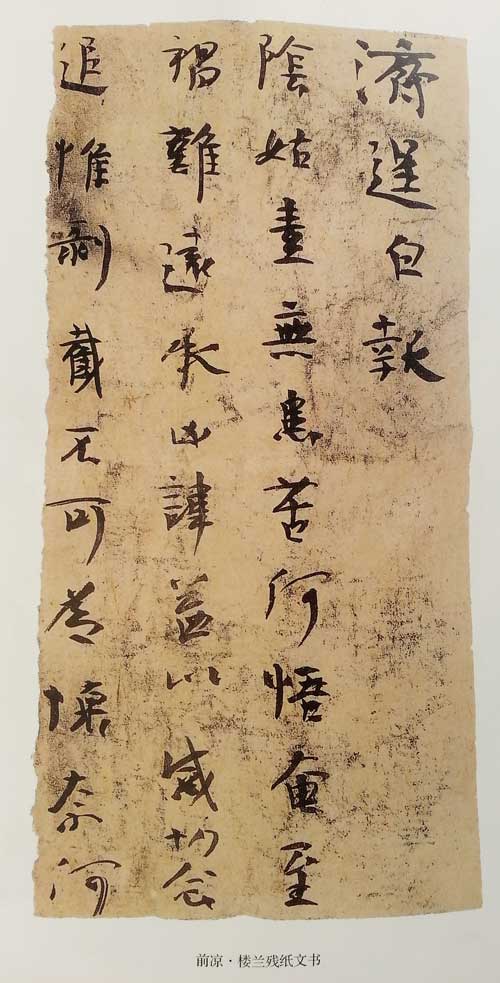 濟逞白報
陰姑素無患苦何悟奄至
禍難遠承凶諱益以感切念
追惟剝截不可為懷奈何
前凉·楼兰残纸文书